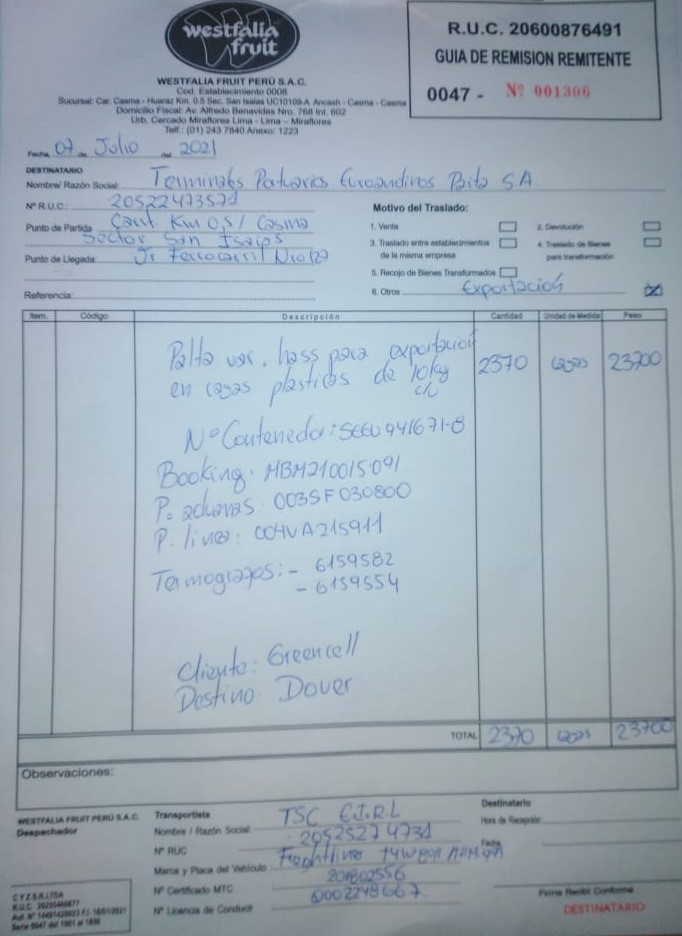 westfalia
fruit
WESTFALIA FRUIT PERÚ S.A.C.
Cod. Establecimiento 0008
Sucursal: Car. Casma - Huaraz Km. 0.5 Sec. San Isaias UC10109-A Ancash - Casma - Casma
Domicilio Fiscal: Av. Alfredo Benavides Nro. 768 Int. 602
Urb. Cercado Miraflores Lima - Lima - Miraflores
Telf.: (01) 243 7840 Anexo: 1223
R.U.C. 20600876491
GUIA DE REMISION REMITENTE
0047 - Nº 001306
Fecha, 07 de Julio del 2021
DESTINATARIO
Nombre/ Razón Social: Terminales Portuarios Euroandinos Paita S.A
Nº R.U.C.: 20522473571
Punto de Partida Carret Km 0,5 / Casma
Sector San Isaias
Punto de Llegada: Jr Ferrocarril Nro 127
Referencia:
Motivo del Traslado:
1. Venta
2. Devolución
3. Traslado entre establecimientos
de la misma empresa
4. Traslado de Bienes
para transformación
5. Recojo de Bienes Transformados
6. Otros Exportación
Item. Código Descripción Cantidad Unidad de Medida Peso
Palta var. hass para exportación 2370 23700
en cajas plasticas de 10kg
c/u
Nº Contenedor: SEGU 941671-8
Booking: MBM210015091
P. aduanas: 003SF030800
P. linea: 004VA215911
Termografos: - 6159582
- 6159554
Cliente: Greencell
Destino Dover
TOTAL 2370 23700
Observaciones:
WESTFALIA FRUIT PERÚ S.A.C
Despachador
Transportista
Nombre / Razón Social TSC E.I.R.L
Nº RUC 20525274731
Marca y Placa del Vehículo Freightliner
Nº Certificado MTC
Nº Licencia de Conducir Q002248667
Destinatario
Hora de Recepción:
Fecha
Firma Recibí Conforme
DESTINATARIO
Serie 0047 del 1001 al